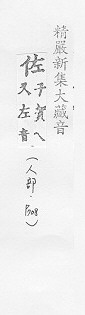 精嚴新集大藏音
佐
子賀へ
又左音
(人部·508)